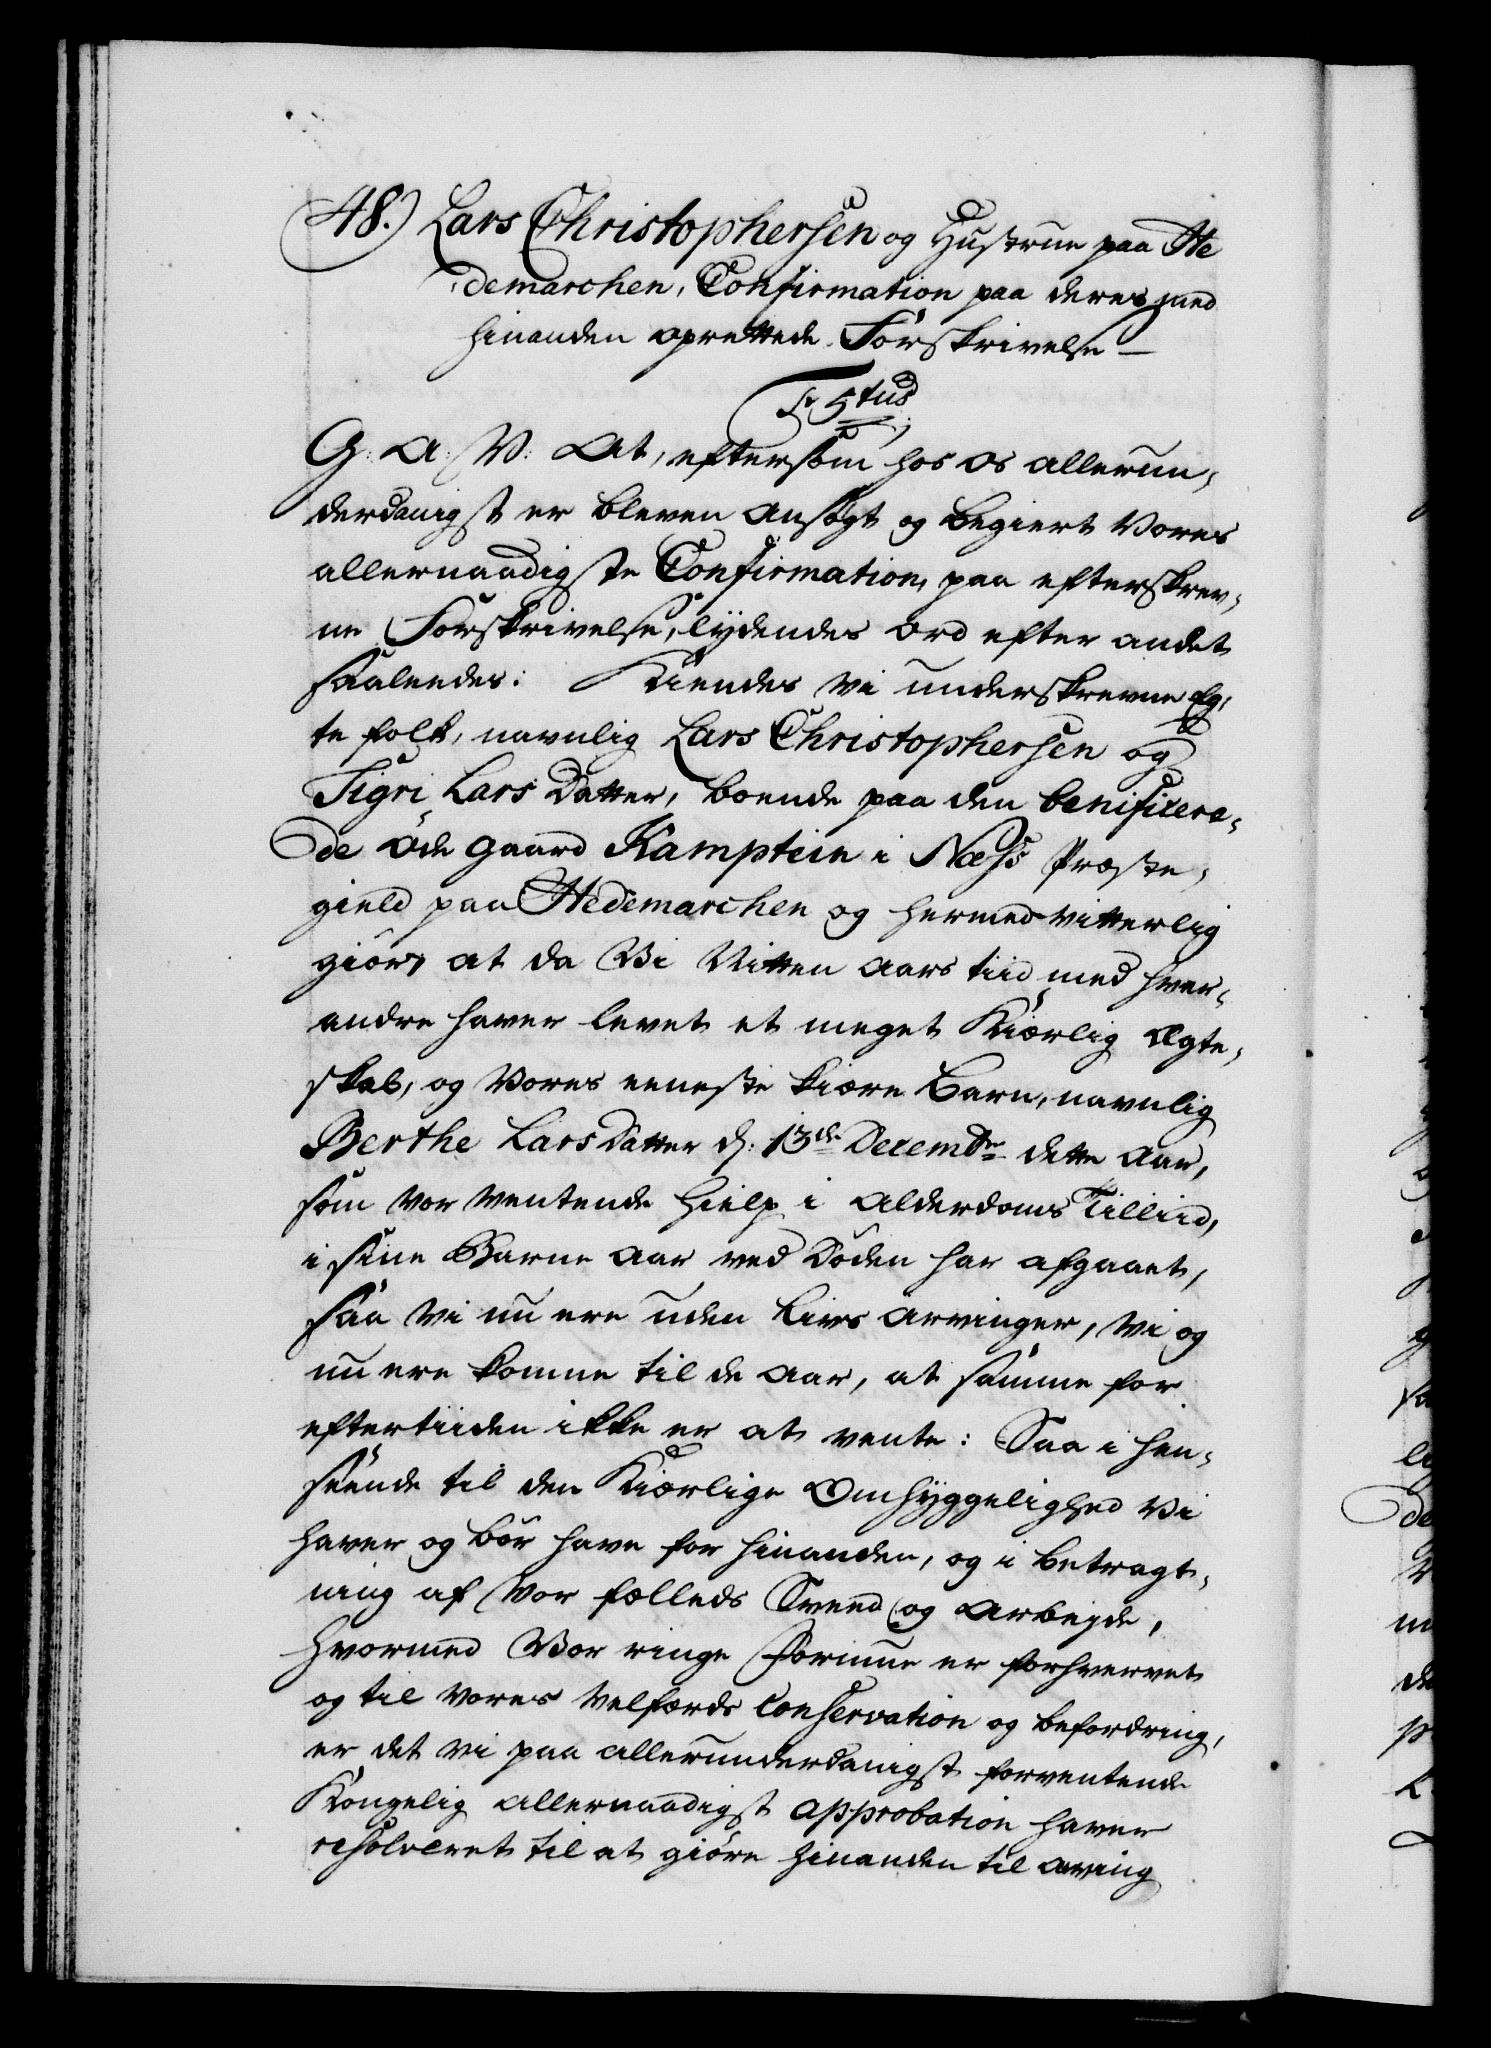 48.) Lars Christophersen og Hustrue paa He
demarchen, Confirmation paa deres med
hinanden oprettede Forskrivelse —
G: A: V: At, eftersom hos os allerun-
derdanigst er bleven ansøgt og begiert Vores
allernaadigste Confirmation, paa efterskrev-
ne Forskrivelse, lÿdendes ord efter andet
saaleedes: Kiendes vi underskrevne Eg-
te folk, navnlig Lars Christophersen og
Sigri Lars Datter, boende paa den benificere-
de øde gaard Kamptein i Næss Præste-
gield paa Hedemarchen og hermed vitterlig
giør, at da Vi Nitten aars tiid med hver-
andre haver levet et meget Kiærlig ægte-
skab, og Vores eeneste kiære Barn, navnlig
Berthe LarsDatter d: 13de Decembr dette aar,
som vor ventende Hielp i Alderdoms Tilliid,
i sine Barne aar ved Døden har afgaaet,
saa vi nu ere uden Livs arvinger, vi og
nu ere komne til de aar, at samme for
eftertiiden ikke er at vente: Saa i hen-
seende til den Kiærlige Omhÿggelighed Vi
haver og bør have for hinanden, og i betragt-
ning af Vor fælleds Sveed og arbejde,
hvormed Vor ringe Formue er forhvervet
og til vores velfærds Conservation og befordring,
er det vi paa allerunderdanigst forventende
Kongelig allernaadigst approbation haver
resolveret til at giøre hinanden til arving